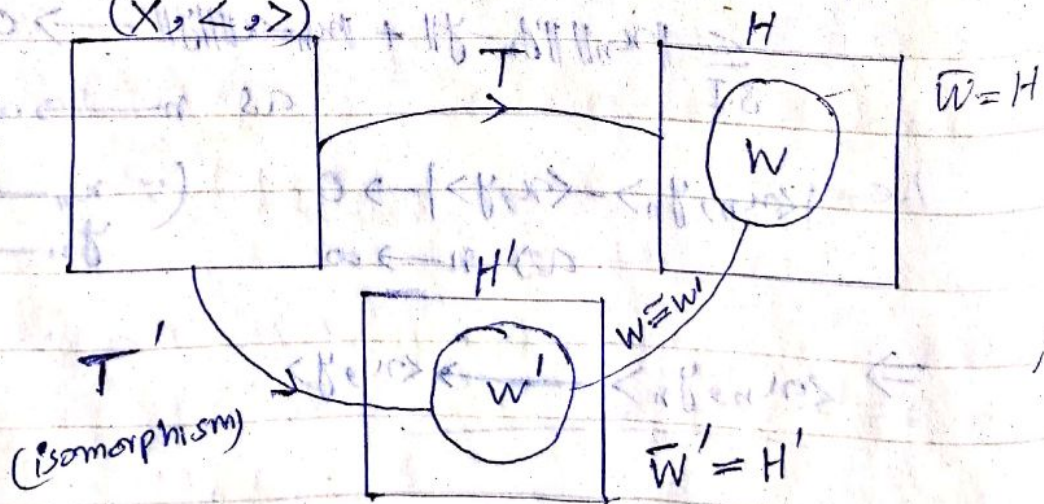 (X, < , >)
T
H
W̄ = H
W
H'
W ≅ W'
T'
(isomorphism)
W'
W̄' = H'